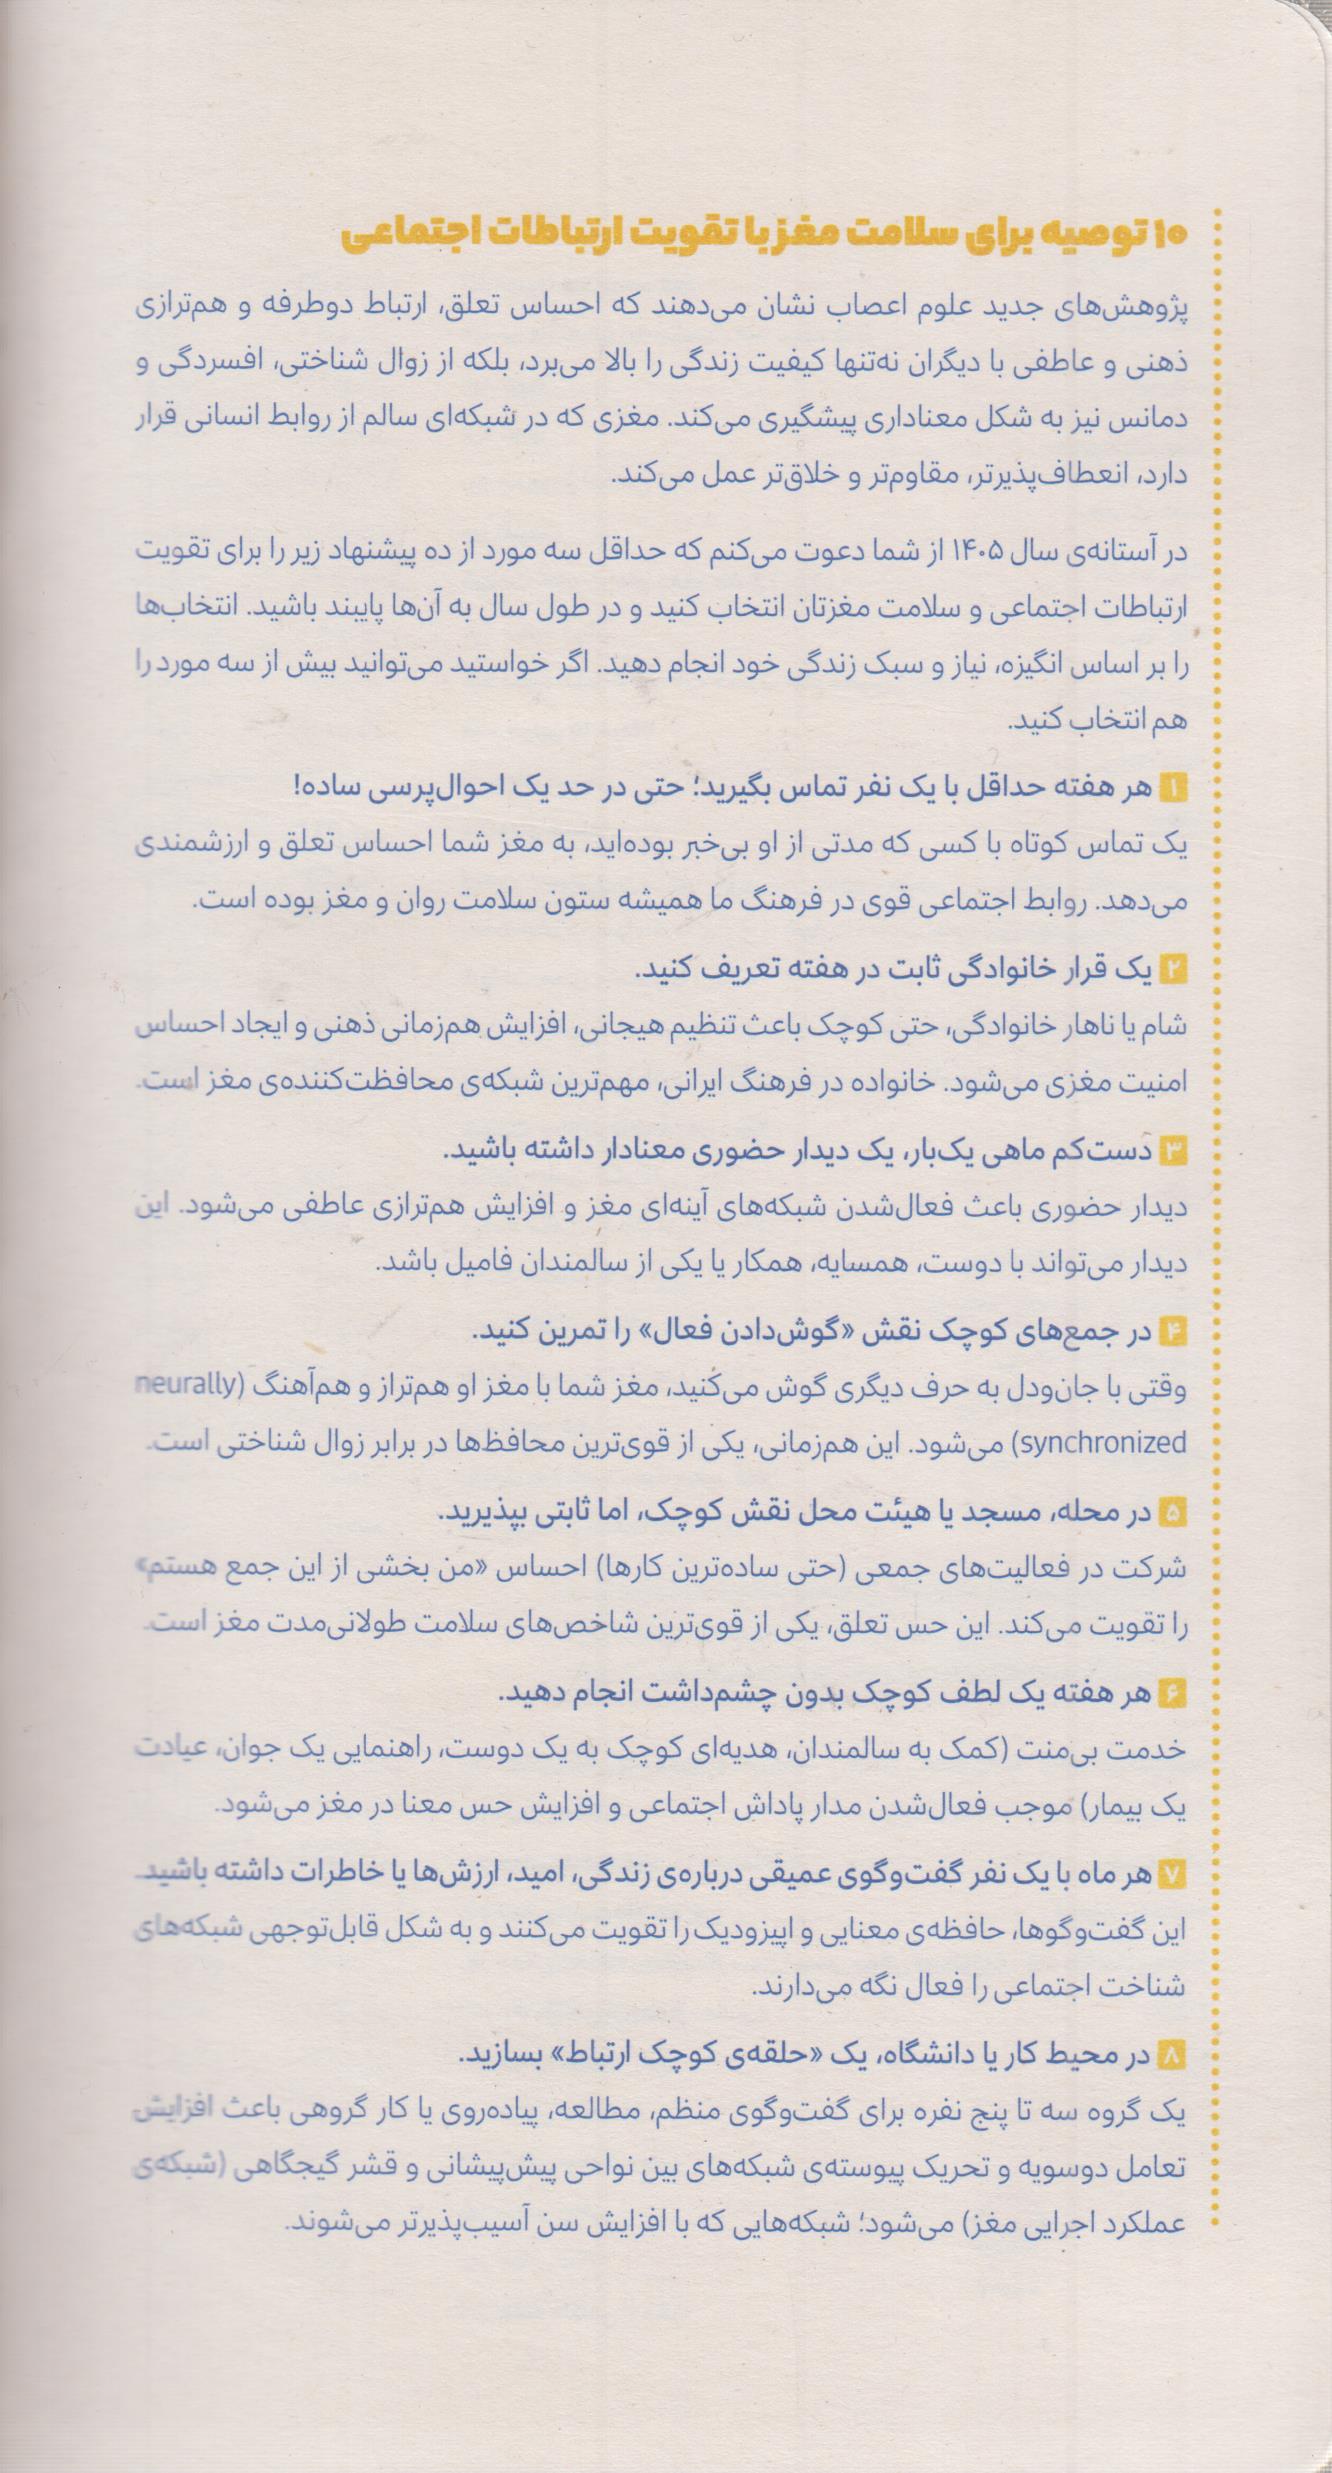 ۱۰ توصیه برای سلامت مغز با تقویت ارتباطات اجتماعی
پژوهش‌های جدید علوم اعصاب نشان می‌دهند که احساس تعلق، ارتباط دوطرفه و هم‌ترازی
ذهنی و عاطفی با دیگران نه‌تنها کیفیت زندگی را بالا می‌برد، بلکه از زوال شناختی، افسردگی و
دمانس نیز به شکل معناداری پیشگیری می‌کند. مغزی که در شبکه‌ای سالم از روابط انسانی قرار
دارد، انعطاف‌پذیرتر، مقاوم‌تر و خلاق‌تر عمل می‌کند.
در آستانه‌ی سال ۱۴۰۵ از شما دعوت می‌کنم که حداقل سه مورد از ده پیشنهاد زیر را برای تقویت
ارتباطات اجتماعی و سلامت مغزتان انتخاب کنید و در طول سال به آن‌ها پایبند باشید. انتخاب‌ها
را بر اساس انگیزه، نیاز و سبک زندگی خود انجام دهید. اگر خواستید می‌توانید بیش از سه مورد را
هم انتخاب کنید.
۱ هر هفته حداقل با یک نفر تماس بگیرید؛ حتی در حد یک احوال‌پرسی ساده!
یک تماس کوتاه با کسی که مدتی از او بی‌خبر بوده‌اید، به مغز شما احساس تعلق و ارزشمندی
می‌دهد. روابط اجتماعی قوی در فرهنگ ما همیشه ستون سلامت روان و مغز بوده است.
۲ یک قرار خانوادگی ثابت در هفته تعریف کنید.
شام یا ناهار خانوادگی، حتی کوچک باعث تنظیم هیجانی، افزایش هم‌زمانی ذهنی و ایجاد احساس
امنیت مغزی می‌شود. خانواده در فرهنگ ایرانی، مهم‌ترین شبکه‌ی محافظت‌کننده‌ی مغز است.
۳ دست‌کم ماهی یک‌بار، یک دیدار حضوری معنادار داشته باشید.
دیدار حضوری باعث فعال‌شدن شبکه‌های آینه‌ای مغز و افزایش هم‌ترازی عاطفی می‌شود. این
دیدار می‌تواند با دوست، همسایه، همکار یا یکی از سالمندان فامیل باشد.
۴ در جمع‌های کوچک نقش «گوش‌دادن فعال» را تمرین کنید.
وقتی با جان‌ودل به حرف دیگری گوش می‌کنید، مغز شما با مغز او هم‌تراز و هم‌آهنگ (neurally
synchronized) می‌شود. این هم‌زمانی، یکی از قوی‌ترین محافظ‌ها در برابر زوال شناختی است.
۵ در محله، مسجد یا هیئت محل نقش کوچک، اما ثابتی بپذیرید.
شرکت در فعالیت‌های جمعی (حتی ساده‌ترین کارها) احساس «من بخشی از این جمع هستم»
را تقویت می‌کند. این حس تعلق، یکی از قوی‌ترین شاخص‌های سلامت طولانی‌مدت مغز است.
۶ هر هفته یک لطف کوچک بدون چشم‌داشت انجام دهید.
خدمت بی‌منت (کمک به سالمندان، هدیه‌ای کوچک به یک دوست، راهنمایی یک جوان، عیادت
یک بیمار) موجب فعال‌شدن مدار پاداش اجتماعی و افزایش حس معنا در مغز می‌شود.
۷ هر ماه با یک نفر گفت‌وگوی عمیقی درباره‌ی زندگی، امید، ارزش‌ها یا خاطرات داشته باشید.
این گفت‌وگوها، حافظه‌ی معنایی و اپیزودیک را تقویت می‌کنند و به شکل قابل‌توجهی شبکه‌های
شناخت اجتماعی را فعال نگه می‌دارند.
۸ در محیط کار یا دانشگاه، یک «حلقه‌ی کوچک ارتباط» بسازید.
یک گروه سه تا پنج نفره برای گفت‌وگوی منظم، مطالعه، پیاده‌روی یا کار گروهی باعث افزایش
تعامل دوسویه و تحریک پیوسته‌ی شبکه‌های بین نواحی پیش‌پیشانی و قشر گیجگاهی (شبکه‌ی
عملکرد اجرایی مغز) می‌شود؛ شبکه‌هایی که با افزایش سن آسیب‌پذیرتر می‌شوند.